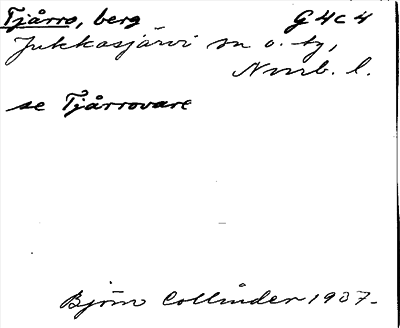 Tjårro, berg G 4c 4
Jukkasjärvi sn o. tg,
Norrb. l.
se Tjårrovare
Björn Collinder 1937-